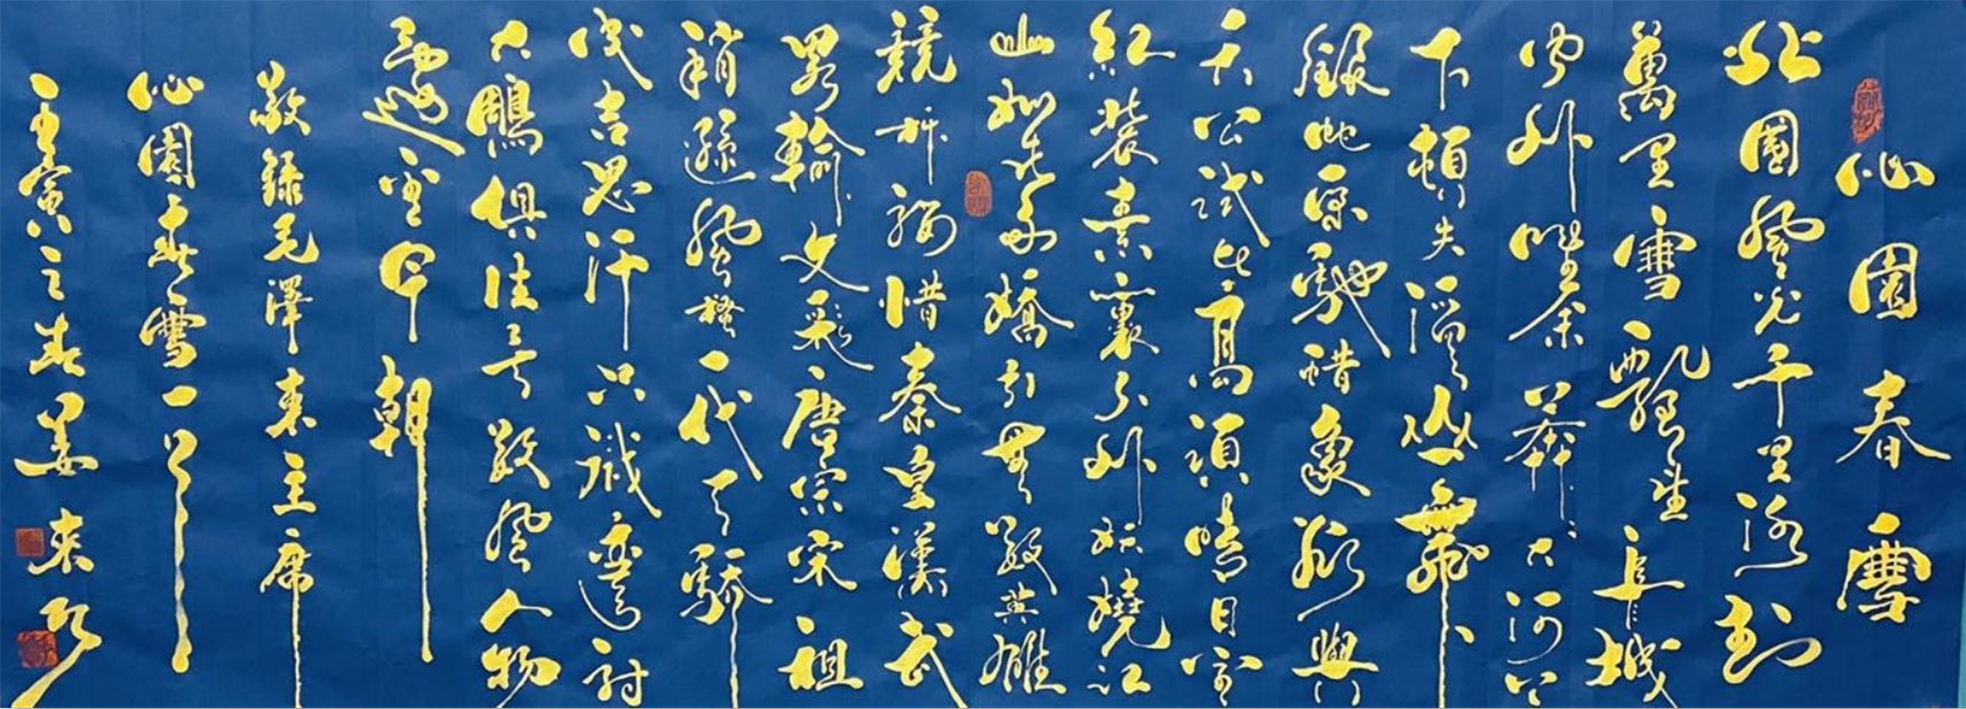 沁園春雪
北國風光千里冰封
萬里雪飄望長城
內外唯余莽莽大河上
下頓失滔滔山舞
銀蛇原馳蜡象欲與
天公試比高須晴日看
紅裝素裹分外妖嬈江
山如此多嬌引無數英雄
競折腰惜秦皇漢武
略輸文彩唐宗宋祖
稍遜風騷一代天驕
成吉思汗只識彎弓射
大鵰俱往矣數風人物
還看今朝
敬録毛澤東主席
沁園春雪一首
壬寅之春姜来